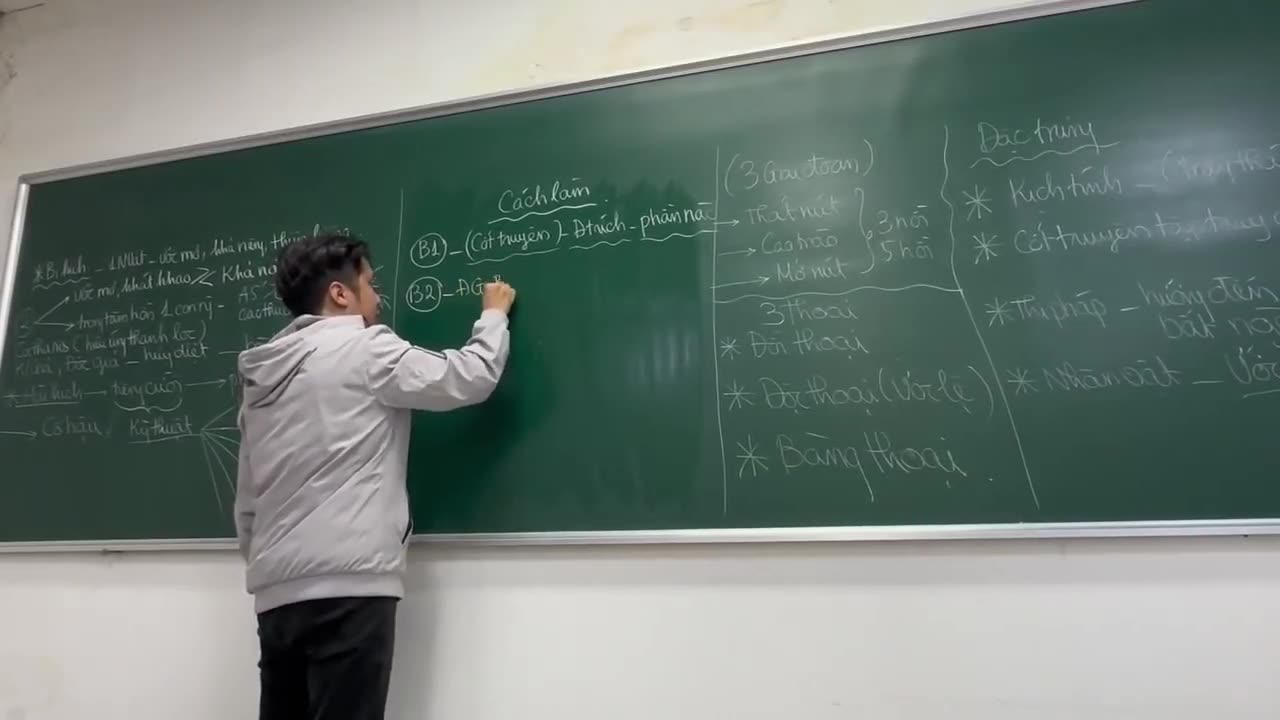 * Bi kịch - 1 NVật - ước mơ, khả năng,
ước mơ, khát khao Khả
trong tâm hồn 1 con ng
Catharsis (hiệu ứng thanh lọc)
huỷ diệt
* Hài kịch - tiếng cười
Có hậu Kỹ thuật
Cách làm
B1 - (Cốt truyện) - Đtrích - phần nào
B2 - ĐG
(3 Giai đoạn)
Thắt nút
Cao trào
Mở nút
3 hồi
5 hồi
3 Thoại
* Đối thoại
* Độc thoại (Ước lệ)
* Bàng thoại
Đặc trưng
* Kịch tính - (trong
* Cốt truyện tập trung
* Thi pháp - hướng đến
bắt
* Nhân vật - Ước